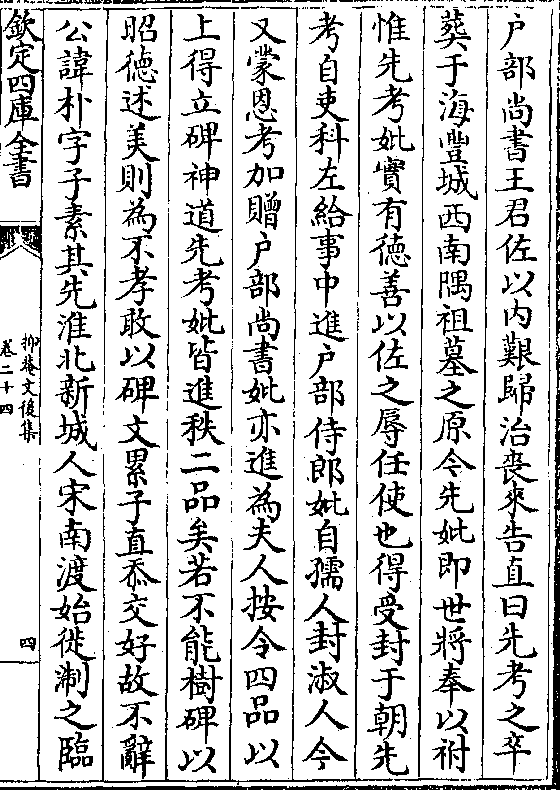 户部尚書王君佐以内艱歸治喪來告直曰先考之卒
葬于海豐城西南隅祖墓之原令先妣即世將奉以祔
惟先考妣實有德善以佐之辱任使也得受封于朝先
考自吏科左給事中進户部侍郎妣自孺人封淑人今
又蒙恩考加贈户部尚書妣亦進為夫人按令四品以
上得立碑神道先考妣皆進秩二品矣若不能樹碑以
昭德述美則為不孝敢以碑文累子直忝交好故不辭
公諱朴字子素其先淮北新城人宋南渡始徙淛之臨
欽定四庫全書
抑菴文後集
卷二十四
四